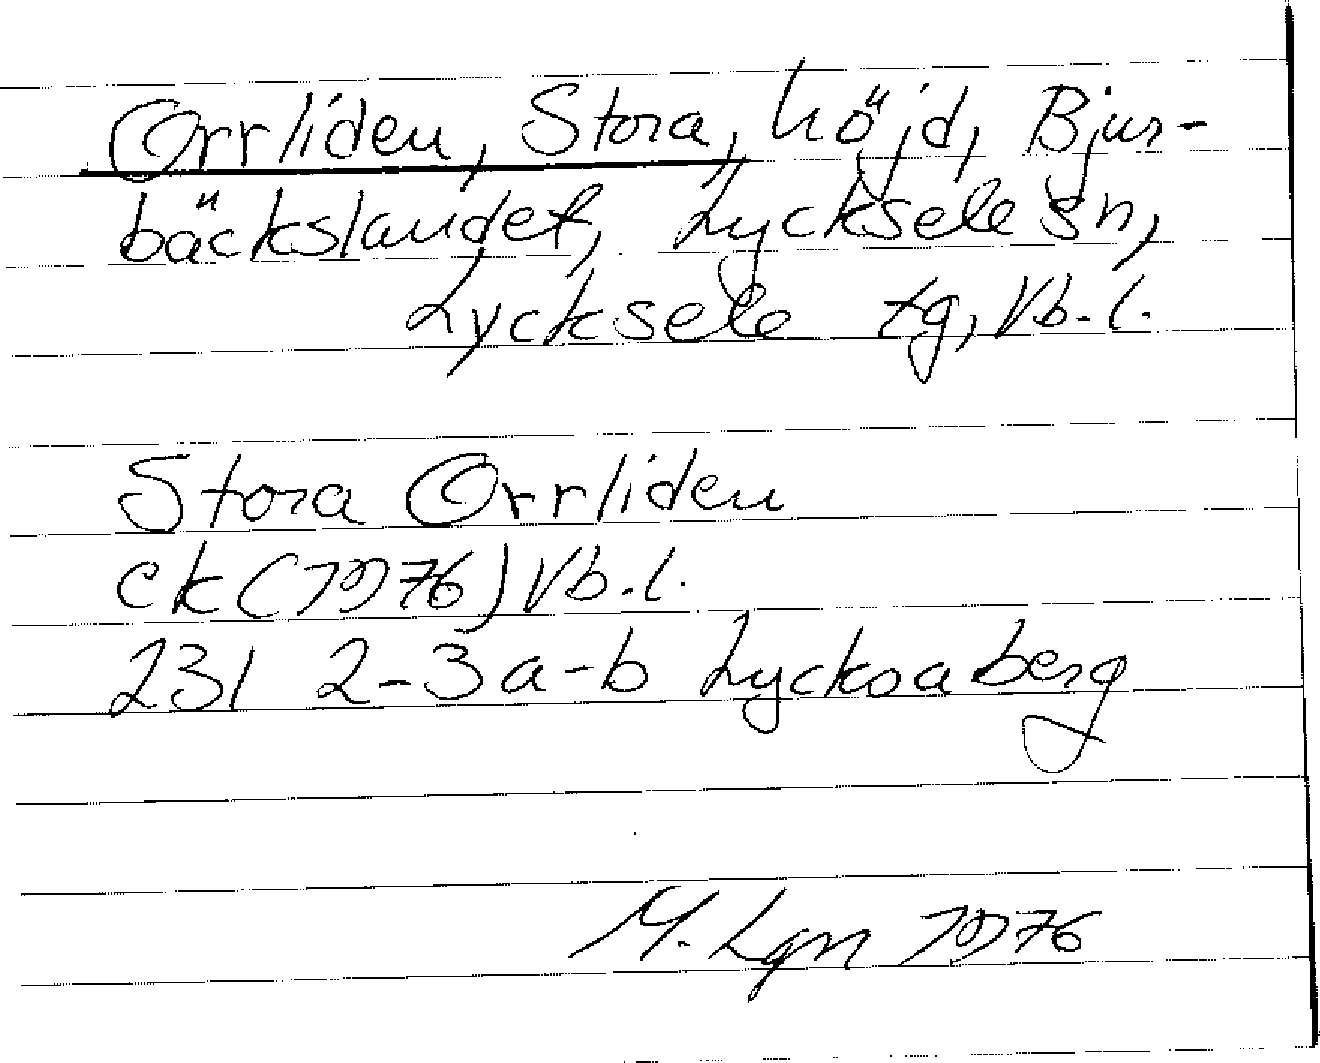 Orrliden, Stora, höjd, Bjur-
bäckslandet, Lycksele sn,
Lycksele tg, Vb. l.
Stora Orrliden
ek (1976) Vb. l.
231 2-3 a-b Lycksaberg
M. Lgn 1976